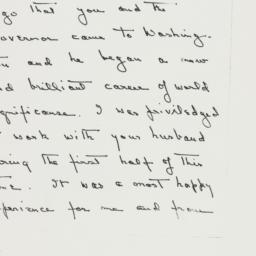 go that you and the
overnor came to Washing-
and he began a new
nd brilliant career of world
gnificance. I was priviledged
work with your husband
ring the first half of this
me. It was a most happy
perience for me and from